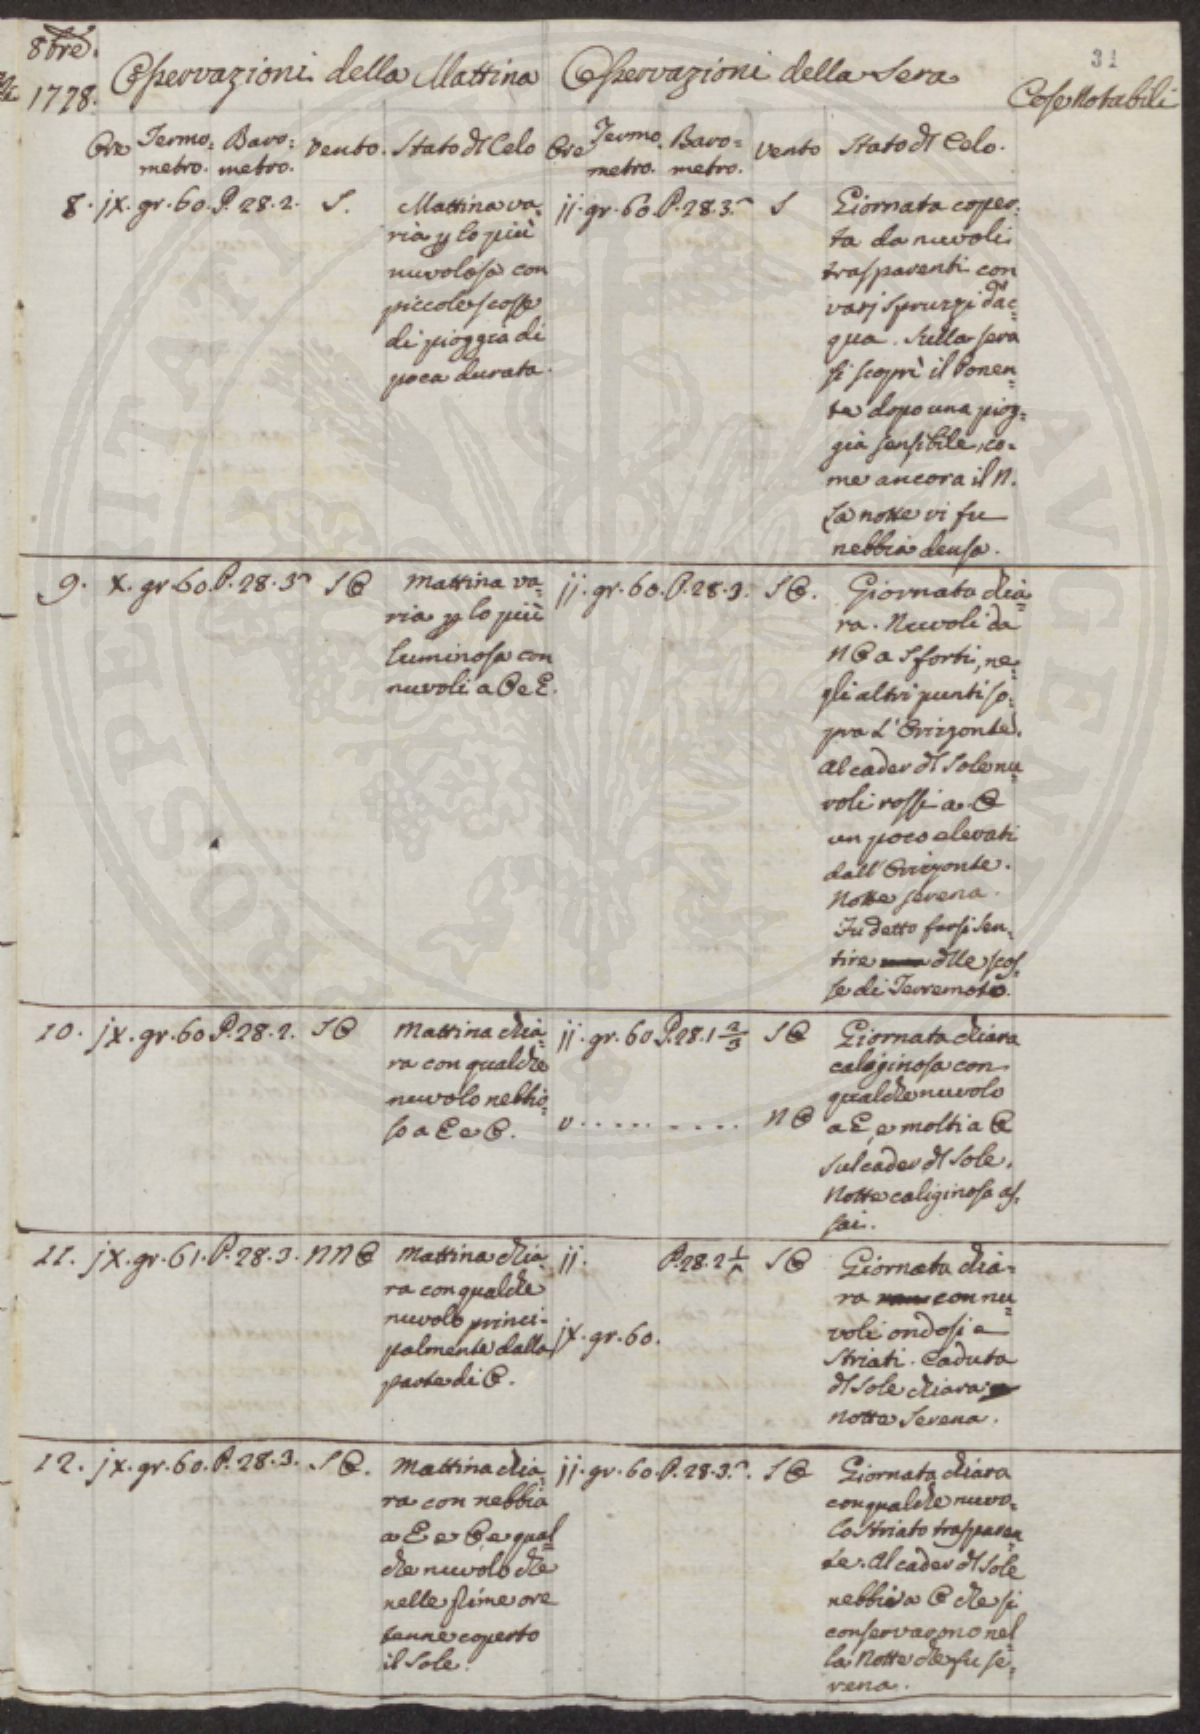 8bre.
1778.
Osservazioni della Mattina
Osservazioni della Sera
31
Cose Notabili
Ore Termo: Baro: Vento. Stato dl Celo
metro. metro.
Ore Termo. Baro= Vento Stato dl Celo.
metro. metro.
8. jx. gr. 60. P. 28. 2. S.
Mattina va=
ria p lo più
nuvolosa con
piccole scosse
di pioggia di
poca durata.
jj. gr. 60. P. 28. 3. S
Giornata coper=
ta da nuvoli
trasparenti con
varj spruzzi d'ac=
qua. Sulla sera
si scoprì il Ponen=
te dopo una piog=
gia sensibile, co=
me ancora il N.
La notte vi fu
nebbia densa.
9. x. gr. 60. P. 28. 3 S O
Mattina va=
ria p lo più
luminosa con
nuvoli a O e E.
jj. gr. 60. P. 28. 3. S O.
Giornata chia=
ra. Nuvoli da
N O a S forti, ne=
gli altri punti so=
pra L'Orizzonte.
Al cader dl Sole nu=
voli rossi a O
un poco elevati
dall'Orizzonte.
Notte serena.
Fu detto farsi sen=
tire dlle scos=
se di Terremoto.
10. jx. gr. 60 P. 28. 2. S O
Mattina chia=
ra con qualche
nuvolo nebbio=
so a E e O.
jj. gr. 60 P. 28. 1 2/3 S O
v. . . . . . . . . . N O
Giornata chiara
caliginosa con
qualche nuvolo
a E, e molti a O
sul cader dl Sole.
Notte caliginosa as=
sai.
11. jx. gr. 61. P. 28. 3. N N O
Mattina chia=
ra con qualche
nuvolo princi=
palmente dalla
parte di O.
jj. P. 28. 2 S O
jx. gr. 60.
Giornata chia=
ra con nu=
voli ondosi e
striati. Caduta
dl Sole chiara
notte Serena.
12. jx. gr. 60. P. 28. 3. S O.
Mattina chia=
ra con nebbia
a E e O, e qual=
che nuvolo che
nelle prime ore
tenne coperto
il Sole.
jj. gr. 60. P. 28. 3. S O
Giornata chiara
con qualche nuvo=
lo striato trasparen=
te. Al cader dl Sole
nebbia a O che si
conservarono nel=
la Notte che fu se=
rena.
PROSPERITATI AUGENDAE